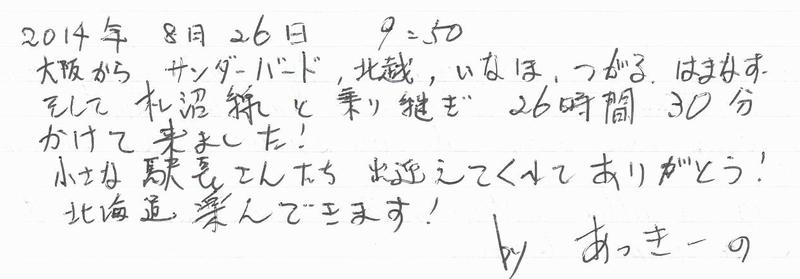 2014年 8月26日 9:50
大阪から サンダーバード,北越,いなほ,つがる,はまなす
そして 札沼線と乗り継ぎ 26時間30分
かけて来ました!
小さな駅長さんたち 出迎えてくれてありがとう!
北海道楽んできます!
by あっきーの